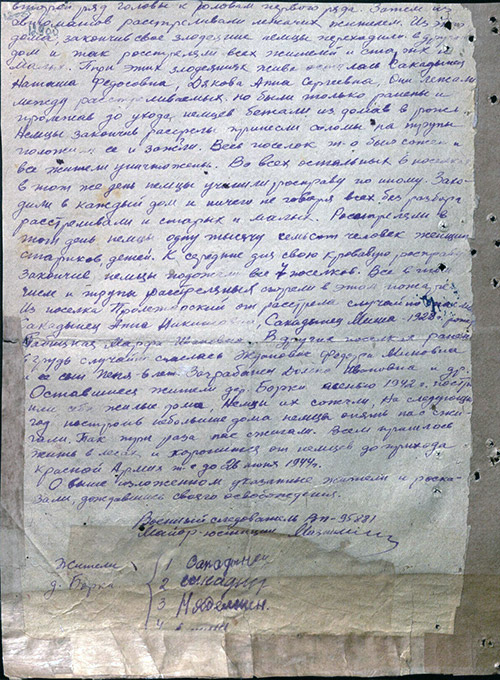 второй ряд головы к головам первого ряда. Затем из
автоматов расстреливали лежачих жителей. Из
дома, закончив свое злодеяние немцы переходили в другой
дом и так расстреляли всех жителей и старых и
малых. При этих злодеяниях живы остались Сакадынец
Наташа Федосовна, Дякова Анна Сергеевна. Они лежали
между расстрелянных, но были только ранены и
пролежав до ухода немцев бежали из домов в рожь.
Немцы закончив расстрелы принесли соломы на трупы
положили ее и зажгли. Весь поселок т.о был сожжен и
все жители уничтожены. Во всех остальных 6 поселках
в тот же день немцы учинили расправу по иному. Захо-
дили в каждый дом и ничего не говоря всех без разбора
расстреливали и старых и малых. Расстреляли в
этот день немцы одну тысячу семьсот человек женщин
стариков, детей. К середине дня свою кровавую расправу
закончив немцы подожгли все 7 поселков. Все в том
числе и трупы расстрелянных сгорели в этом пожаре.
Из поселка Пролетарский от расстрела случайно
Сакадынец Анна Никитовна, Сакадынец Миша 1928
Марфа Ивановна. В других поселках ранен
грудь случайно спаслась Федора
и ее сын Женя лет. Ивановна и др.
Оставшиеся жители дер. Борки осенью 1942 г.
жилые дома, Немцы их сожгли. На следующий
год построив небольшие дома немцы опять нас сжи-
гали. Так три раза нас сжигали. Всем пришлось
жить в лесах и хорониться от немцев до прихода
Красной Армии т е до 28 июня 1944 г.
О выше изложенном указанные жители и расска-
зали, дождавшись своего освобождения.
Военный следователь ВП-95881
Майор юстиции
Жители
д. Борки
1 Сакадынец
2 Сакадынец
3
4